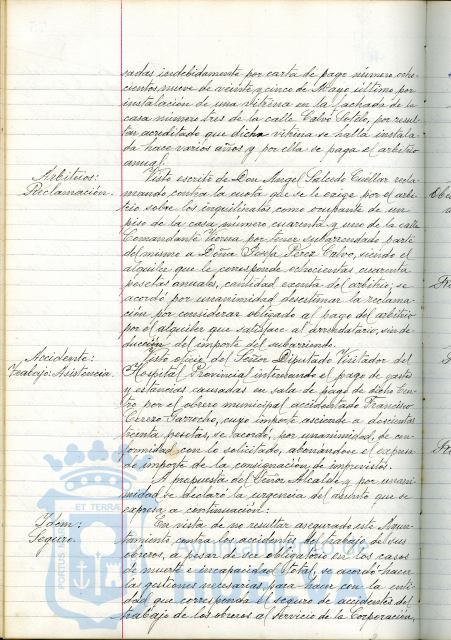 sadas indebidamente por carta de pago número ocho-
cientos nueve de veinte y cinco de Mayo último por
instalación de una vitrina en la fachada de la
casa número tres de la calle Calvo Sotelo, por resul-
tar acreditado que dicha vitrina se halla instala-
da hace varios años y por ella se paga el arbitrio
anual.
Arbitrios:
Reclamación.
Visto escrito de Don Angel Salcedo Cuéllar recla-
mando contra la cuota que se le exige por el arbi-
trio sobre los inquilinatos como ocupante de un
piso de la casa número cuarenta y uno de la calle
Comandante por tener subarrendado parte
del mismo a Doña Josefa Pérez Calvo, siendo el
alquiler que le corresponde ochocientas cuarenta
pesetas anuales, cantidad exenta del arbitrio; se
acordó por unanimidad desestimar la reclama-
ción por considerar obligado al pago del arbitrio
por el alquiler que satisface al arrendatario, sin de-
ducción del importe del subarriendo.
Accidente:
Trabajo: Asistencia.
Visto oficio del Señor Diputado Visitador del
Hospital Provincial interesando el pago de gastos
y estancias causadas en sala de pago de dicho Cen-
tro por el obrero municipal accidentado Francisco
Cerezo Garrocho, cuyo importe asciende a doscientas
treinta pesetas, se acordó, por unanimidad, de con-
formidad con lo solicitado, abonandose el expresa-
do importe de la consignación de imprevistos.
A propuesta del Señor Alcalde y por unani-
midad se declaró la urgencia del asunto que se
expresa a continuación:
Idem:
Seguro.
En vista de no resultar asegurado este Ayun-
tamiento contra los accidentes del trabajo de sus
obreros, a pesar de ser obligatorio en los casos
de muerte e incapacidad total, se acordó hacer
las gestiones necesarias para hacer con la enti-
dad que corresponda el seguro de accidentes del
trabajo de los obreros al servicio de la Corporación,
ET TERRA
PORTUS